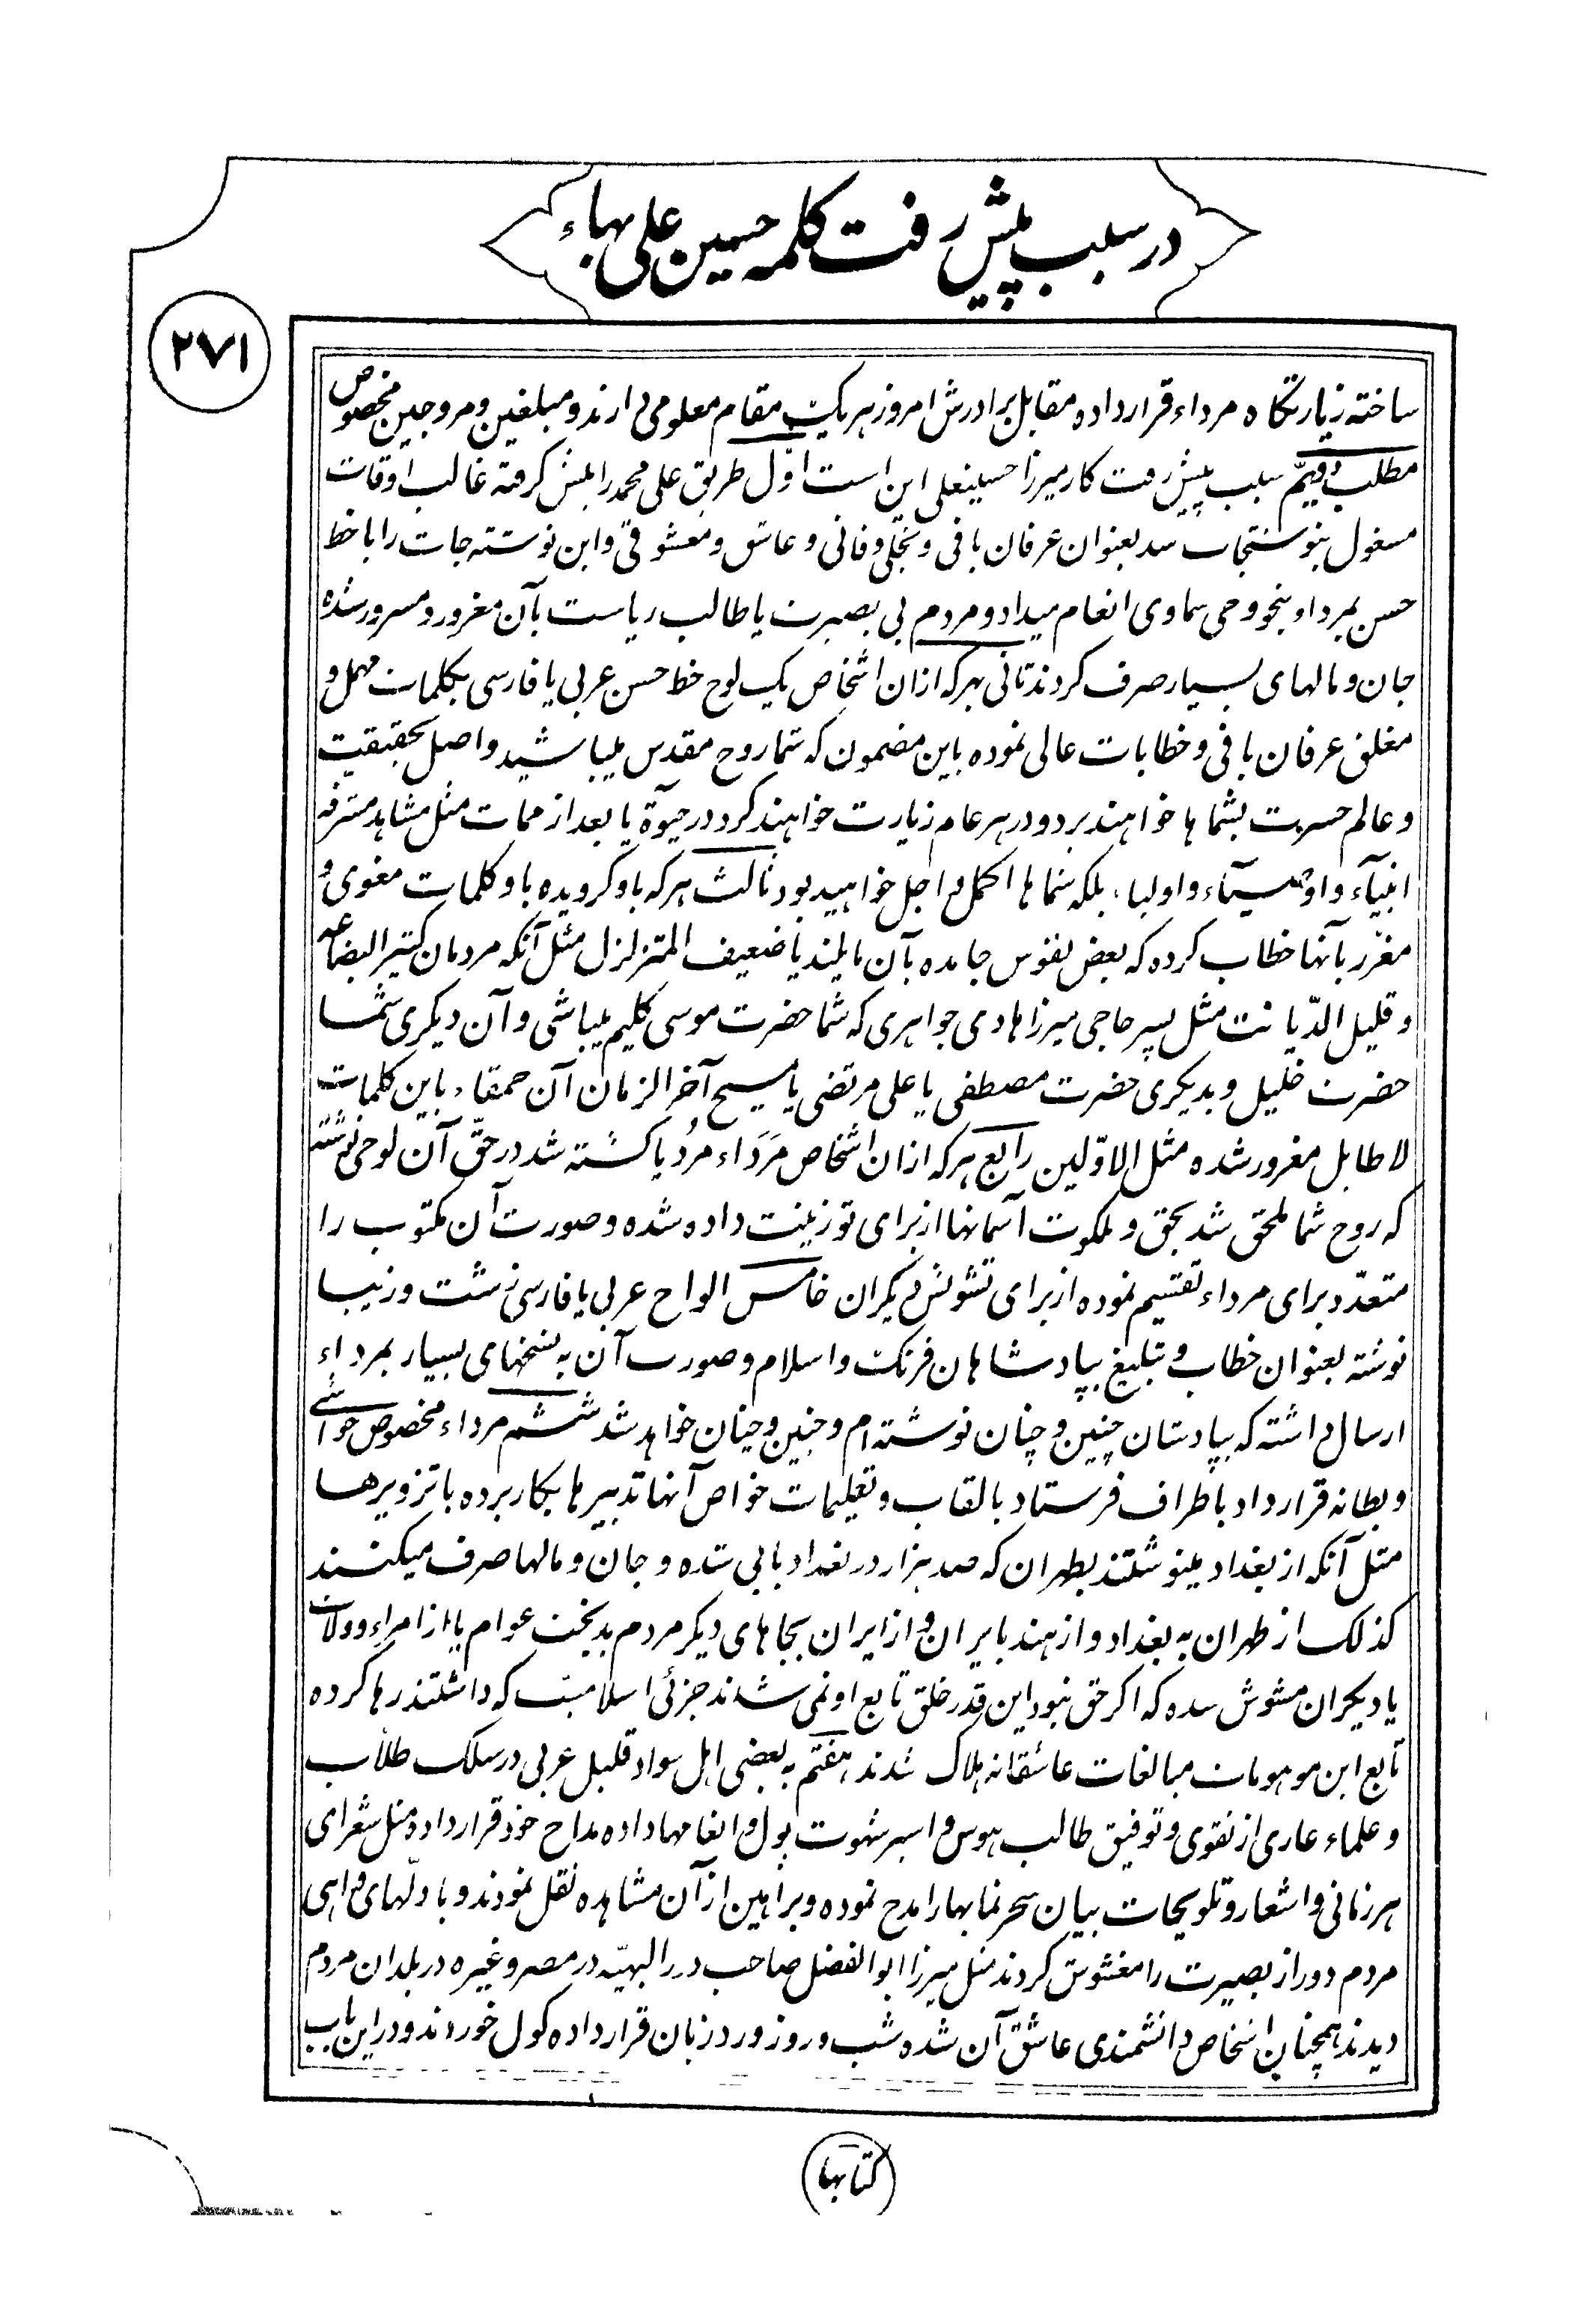 در سبب پیش رفت کلمه حسین علی بهاء
۲۷۱
ساخته زیارتگاه مرداء قرار داده مقابل برادرش امروز هر یک مقام معلومی دارند و مبلغین و مروجین مخصوص
مطلب دویّم سبب پیش رفت کار میرزا حسینعلی این است اوّل طریق علی محمد را پیش گرفته غالب اوقات
مشغول بنوشتجات شد بعنوان عرفان بافی و تجلی و فانی و عاشق و معشوقی و این نوشته جات را با خط
حسن بمرداء بنحو وحی سماوی انعام میداد و مردم بی بصیرت یا طالب ریاست بآن مغرور و مسرور شده
جان و مالهای بسیار صرف کردند ثانی بهر که از ان اشخاص یک لوح خط حسن عربی یا فارسی بکلمات مهمل و
مغلق عرفان بافی و خطابات عالی نموده باین مضمون که شما روح مقدس میباشید و اصل حقیقت
و عالم حسرت بشما ها خواهند برد و در هر عام زیارت خواهند کرد در حیوة یا بعد از ممات مثل مشاهد مشرفه
انبیآء و اوصیآء و اولیاء بلکه شما ها اکمل و اجل خواهید بود ثالث هر که باو گرویده باو کلمات مغوی و
مغرّر بآنها خطاب کرده که بعض نفوس جامده بآن مایلند یا ضعیف المتزلزل مثل آنکه مردمان کثیر البضاعه
و قلیل الدّیانت مثل پسر حاجی میرزا هادی جواهری که شما حضرت موسی کلیم میباشی و آن دیگری شما
حضرت خلیل و بدیگری حضرت مصطفی یا علی مرتضی یا مسیح آخر الزمان آن حمقاء باین کلمات
لا طایل مغرور شده مثل الاوّلین رابع هر که از ان اشخاص مَرَداء مرُد یا کشته شد در حقّ آن لوحی نوشته
که روح شما ملحق شد بحق و ملکوت آسمانها از برای تو زینت داده شده و صورت آن مکتوب را
متعدّد برای مرداء تقسیم نموده از برای تشویش دیگران خامس الواح عربی یا فارسی زشت و زیبا
نوشته بعنوان خطاب و تبلیغ بپادشاهان فرنگ و اسلام و صورت آن به نسخهای بسیار بمرداء
ارسال داشته که بپادشان چنین و چنان نوشته ام و چنین و چنان خواهد شد ششم مرداء مخصوص حواشی
و بطانه قرار داد باطراف فرستاد بالقاب و تعلیمات خواص آنها تدبیر ها بکار برده با تزویرها
مثل آنکه از بغداد مینوشتند بطهران که صد هزار در بغداد بابی شده و جان و مالها صرف میکنند
کذلک از طهران به بغداد و از هند بایران و از ایران بجاهای دیگر مردم بدبخت عوام یا از امراء و ولات
یا دیگران مشوش شده که اگر حق نبود این قدر خلق تابع او نمی شدند جزئی اسلامیت که داشتند رها کرده
تابع این موهومات مبالغات عاشقانه هلاک شدند هفتم به بعضی اهل سواد قلیل عربی در سلک طلاب
و علماء عاری از تقوی و توفیق طالب هوس و اسیر شهوت پول و انعامها داده مداح خود قرار داده مثل شعرای
هر زمانی و اشعار و تلویحات بیان سحر نما بها را مدح نموده و براهین از آن مشاهده نقل نمودند و با دلّهای واهی
مردم دور از بصیرت را مغشوش کردند مثل میرزا ابو الفضل صاحب درر البهیّه در مصر و غیره در بلدان مردم
دیدند همچنان اشخاص دانشمندی عاشق آن شده شب و روز ورد زبان قرار داده گول خوردند و در این باب
کتابها